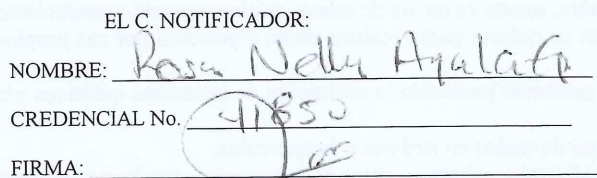 EL C. NOTIFICADOR:
NOMBRE: Rosa Nelly Ayala G
CREDENCIAL No. 11850
FIRMA: